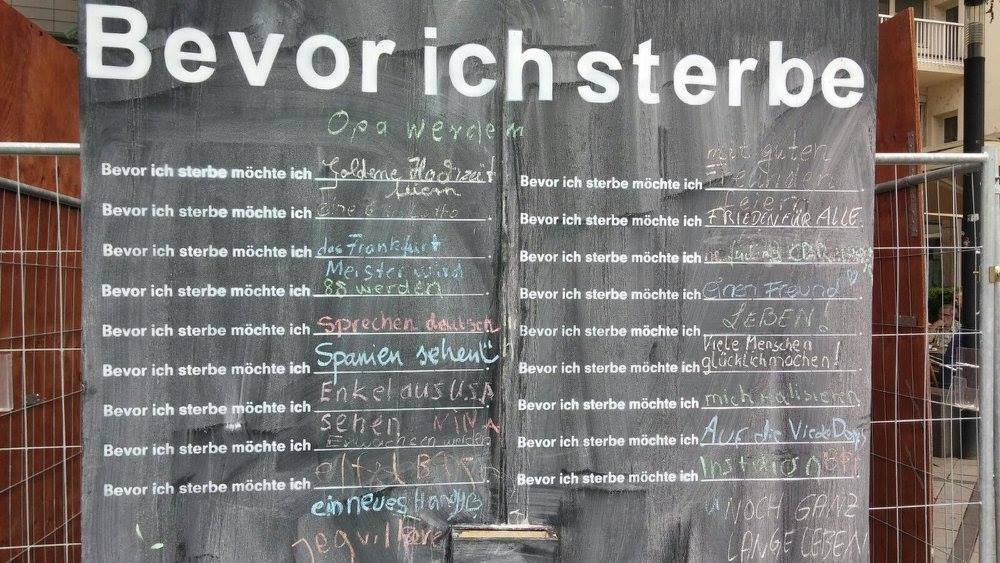 Bevor ich sterbe
Opa werden
Bevor ich sterbe möchte ich Goldene Hochzeit
feiern
Bevor ich sterbe möchte ich eine
Bevor ich sterbe möchte ich das Frankfurt
Meister wird
Bevor ich sterbe möchte ich 88 werden
Bevor ich sterbe möchte ich sprechen deutsch
Bevor ich sterbe möchte ich Spanien sehen
Bevor ich sterbe möchte ich Enkel aus U.S.A
sehen NINA
Bevor ich sterbe möchte ich Erwachsen werden
Bevor ich sterbe möchte ich
ein neues Handy
mit guten
Bevor ich sterbe möchte ich Freunden
feiern
Bevor ich sterbe möchte ich FRIEDEN FÜR ALLE
Bevor ich sterbe möchte ich
Bevor ich sterbe möchte ich einen Freund
LEBEN!
Bevor ich sterbe möchte ich
Viele Menschen
Bevor ich sterbe möchte ich glücklich machen!
Bevor ich sterbe möchte ich mich
Bevor ich sterbe möchte ich Auf die
Bevor ich sterbe möchte ich
NOCH GANZ
LANGE LEBEN